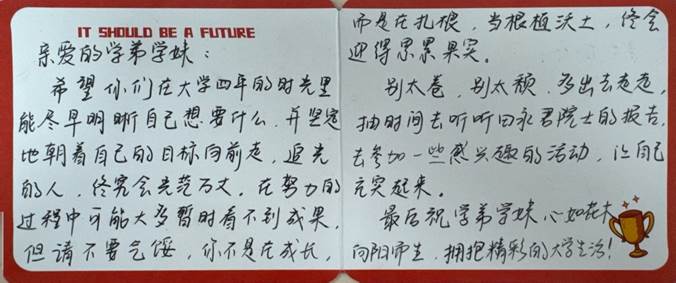 IT SHOULD BE A FUTURE
亲爱的学弟学妹：
希望你们在大学四年的时光里
能尽早明晰自己想要什么，并坚定
地朝着自己的目标向前走，追光
的人，终究会光芒万丈。在努力的
过程中可能大多暂时看不到成果，
但请不要气馁，你不是在成长，
而是在扎根，当根植沃土，终会
迎得累累果实。
别太卷，别太颓，多出去走走，
抽时间去听听田永君院士的报告，
去参加一些感兴趣的活动，让自己
充实起来。
最后祝学弟学妹心如花木，
向阳而生，拥抱精彩的大学生活！